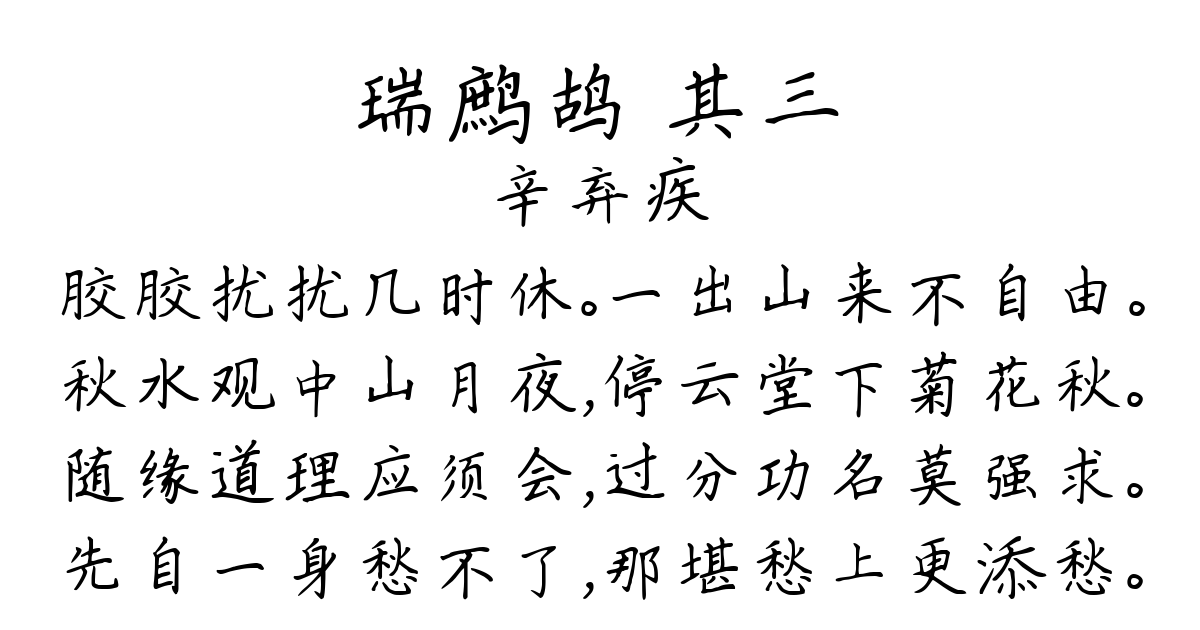 瑞鹧鸪 其三
辛弃疾
胶胶扰扰几时休。一出山来不自由。
秋水观中山月夜,停云堂下菊花秋。
随缘道理应须会,过分功名莫强求。
先自一身愁不了,那堪愁上更添愁。